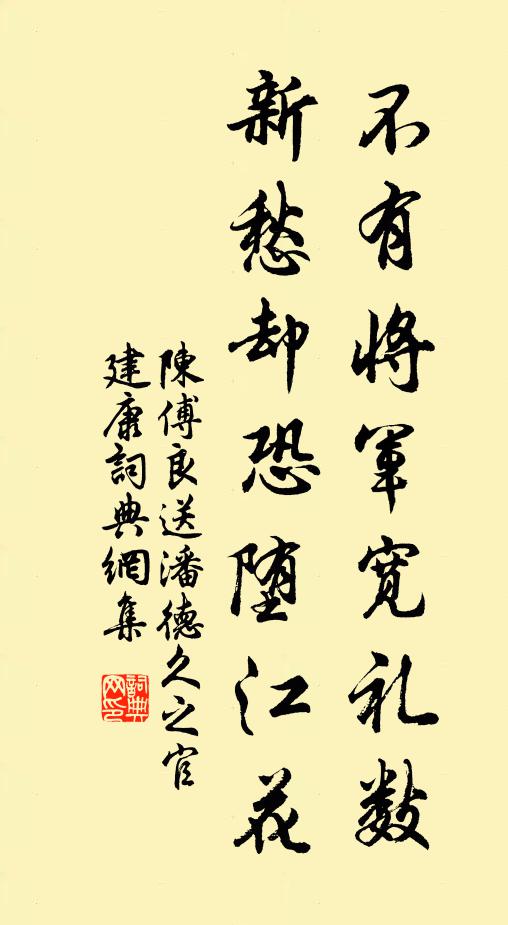 不有将軍宽礼数
新愁却恐堕江花
陳傅良送潘德久之官
建康詞典網集
詞典网印